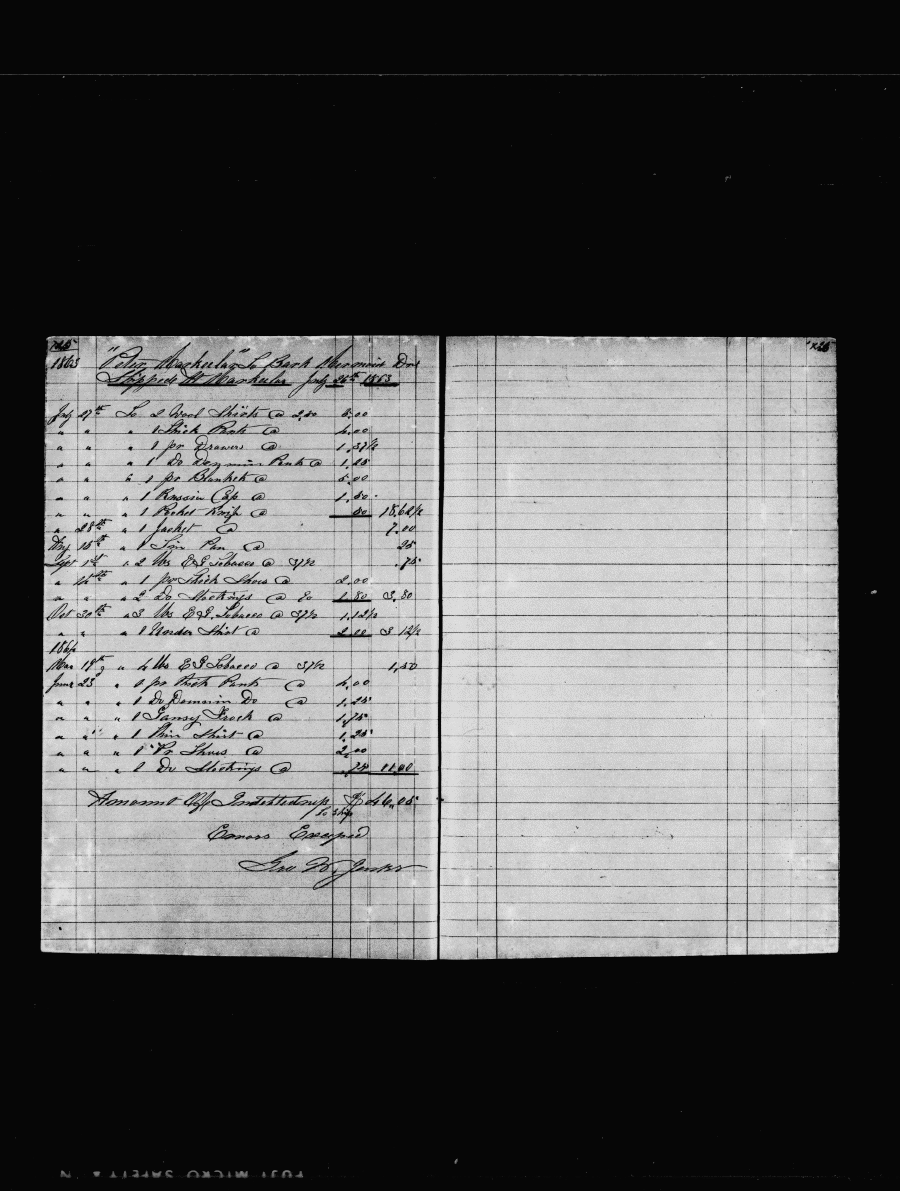 125
1863 "Peter Markeula" To Bark Dr
Shipped At Markeula July 26th 1863
July 27th To 2 Wool Shirts @ 2,50 5.00
" " " 1 Thick Pants @ 4.00
" " " 1 pr Drawers @ 1.37½
" " " 1 Do Pants @ 1.25
" " " 1 pr Blankets @ 5.00
" " " 1 Russia Cap @ 1.50
" " " 1 Pocket Knife @ 50 18,62½
" 28th " 1 Jacket @ 7.00
1 Tin Pan @ 25
Sept 1st " 2 lbs E G Tobacco @ 37½ .75
" 14th " 1 pr Thick Shoes @ 2.00
" " " 2 Do Stockings @ 90 1.80 3.80
Oct 30th " 3 lbs E G. Tobacco @ 37½ 1.12½
" " " 1 Under Shirt @ 2.00 3 12½
1864
Mar 19th " 4 lbs E G Tobacco @ 37½ 1,50
June 23d " 1 pr thick Pants @ 4,00
" " " 1 Do Do @ 1.25
" " " 1 Gansy Frock @ 1,75
" " " 1 Thin Shirt @ 1.25
" " " 1 Pr Shoes @ 2,00
" " " 1 Do Stockings @ .75 11.00
Amount Of Indebtedness $46,05
To Ship
Errors Excepted
Geo W.